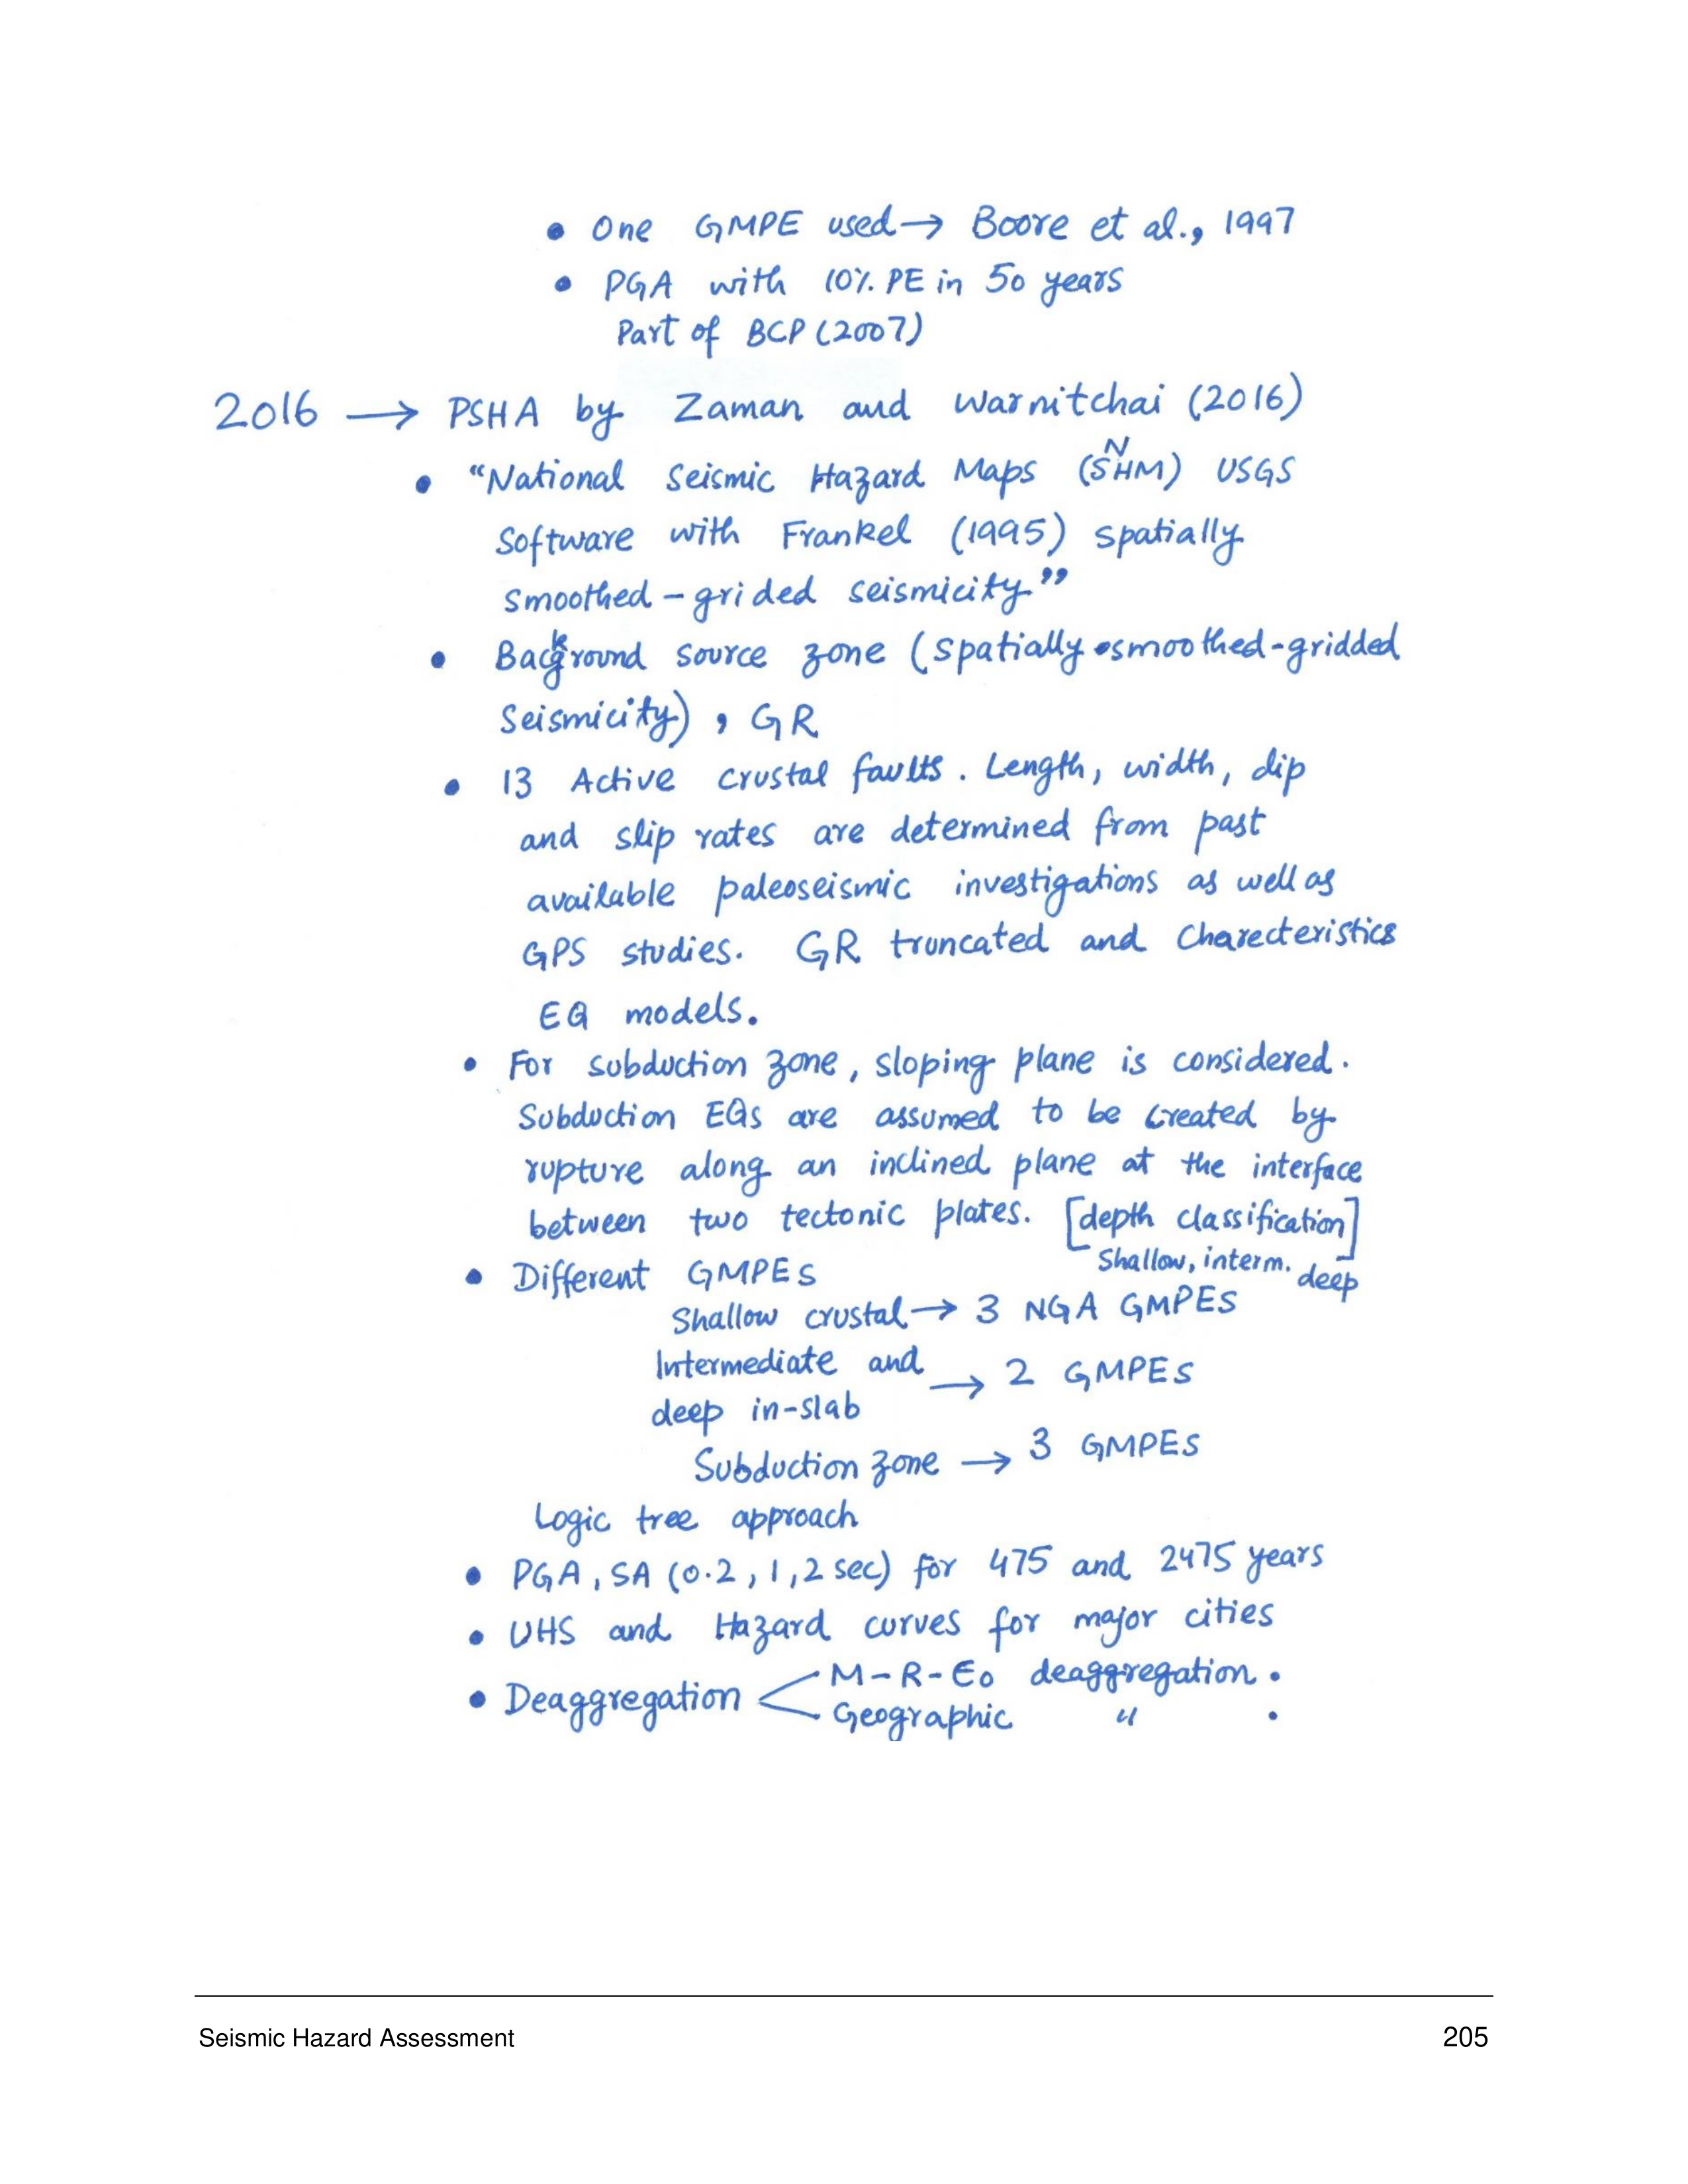 • One GMPE used → Boore et al., 1997
• PGA with 10% PE in 50 years
Part of BCP (2007)
2016 → PSHA by Zaman and Warnitchai (2016)
• "National Seismic Hazard Maps (SNHM) USGS
Software with Frankel (1995) spatially
smoothed - grided seismicity"
• Backround source zone (spatially smoothed-gridded
Seismicity), GR
• 13 Active crustal faults. Length, width, dip
and slip rates are determined from past
available paleoseismic investigations as well as
GPS studies. GR truncated and Charecteristics
EQ models.
• For subduction zone, sloping plane is considered.
Subduction EQs are assumed to be created by
rupture along an inclined plane at the interface
between two tectonic plates. [depth classification]
Shallow, interm. deep
• Different GMPEs
Shallow crustal → 3 NGA GMPEs
Intermediate and
deep in-slab → 2 GMPEs
Subduction zone → 3 GMPEs
Logic tree approach
• PGA, SA (0.2, 1, 2 sec) for 475 and 2475 years
• UHS and Hazard curves for major cities
• Deaggregation < M-R-Eo deaggregation.
Geographic " .
Seismic Hazard Assessment 205